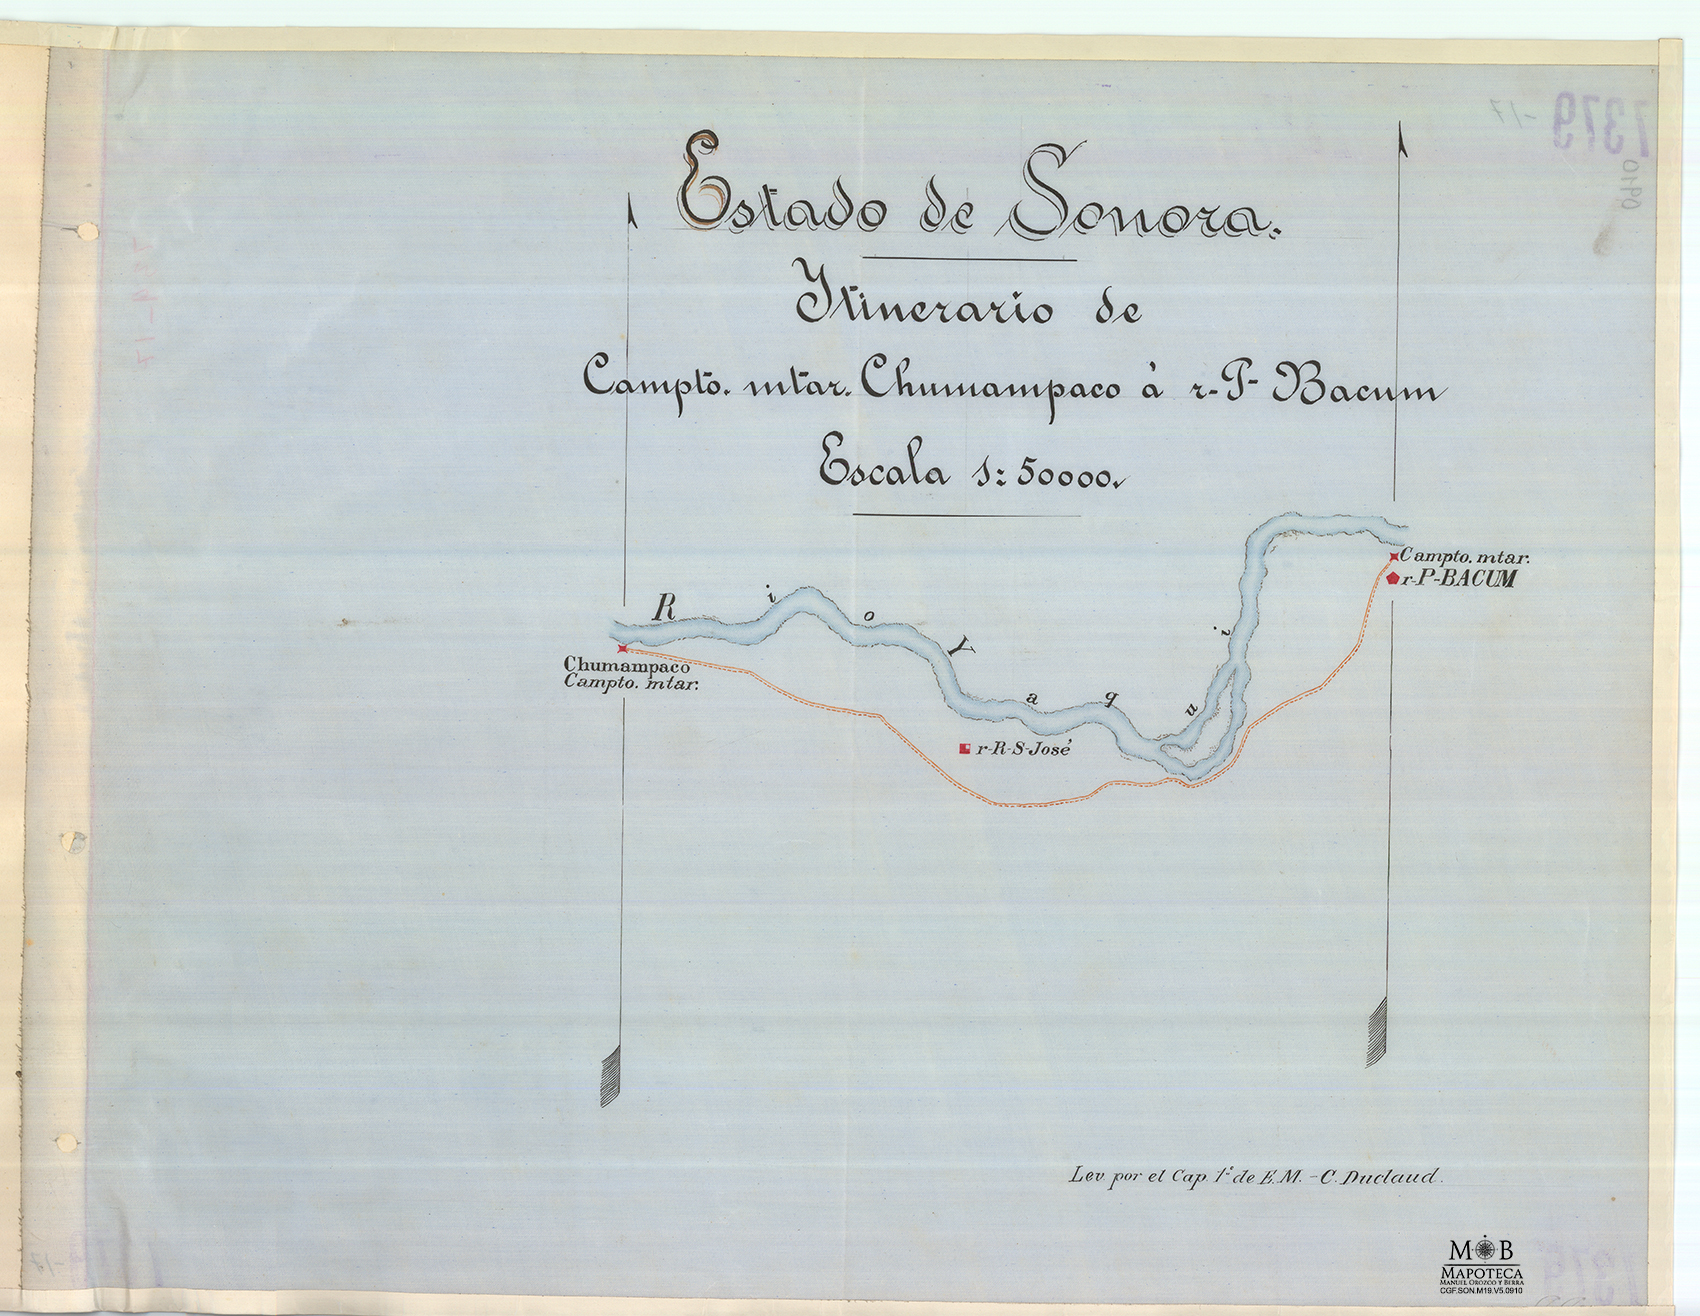 7379
-17
0190
Estado de Sonora.
Itinerario de
Campto. mtar. Chumampaco á r-P- Bacum
Escala 1:50000.
Campto. mtar.
r-P-BACUM
Rio Yaqui
Chumampaco
Campto. mtar.
r-R-S-José
Lev por el Cap. 1º de E.M. - C. Duclaud.
MOB
MAPOTECA
MANUEL OROZCO Y BERRA
CGF.SON.M19.V5.0910